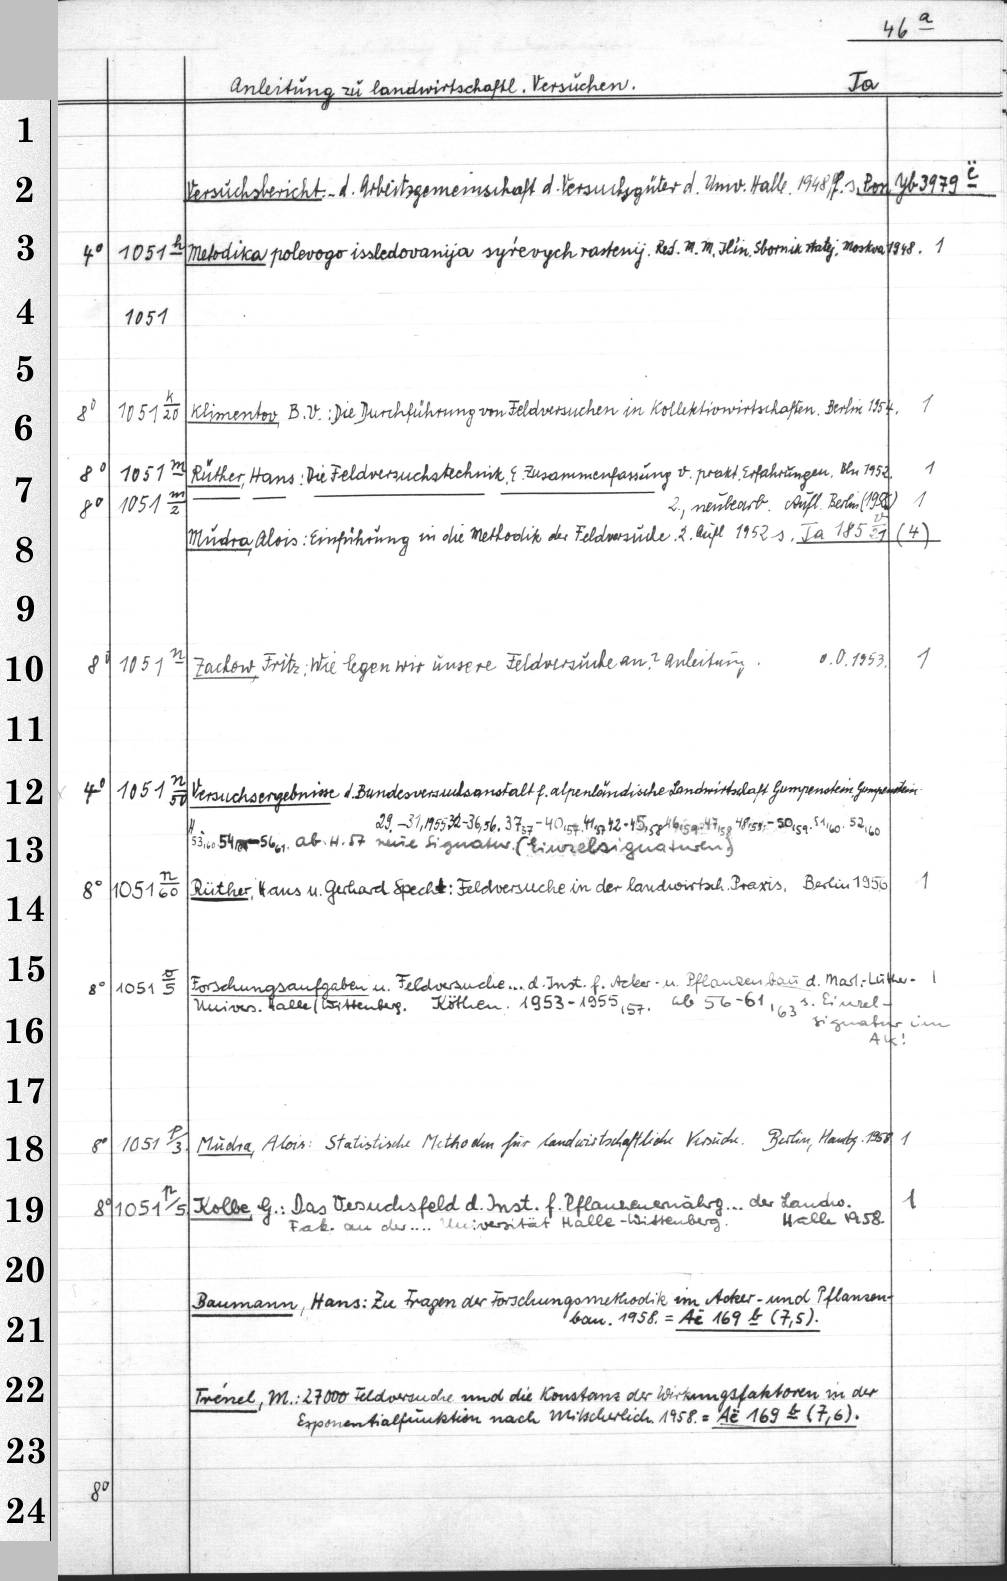 46 a
Anleitung zu landwirtschaftl. Versuchen. Ta
1
2 Versuchsbericht - d. Arbeitsgemeinschaft d. Versuchsgüter d. Univ. Halle. 1948 ff. s. Pon Yb 3979 č
3 4° 1051 h Metodika polevogo issledovanija syŕevych rastenij. Red. M. M. Il'in. Sbornik statej. Moskva 1948. 1
4 1051
5
6 8° 1051 k/20 Klimentov, B. V.: Die Durchführung von Feldversuchen in Kollektivwirtschaften. Berlin 1954. 1
8° 1051 m Rüther, Hans: Die Feldversuchstechnik. E. Zusammenfassung v. prakt. Erfahrungen. Bln 1952. 1
7 8° 1051 m/2 2., neubearb. Aufl. Berlin 1
8 Mudra, Alois: Einführung in die Methodik der Feldversuche. 2. Aufl 1952 s. Ta 185 (4)
9
10 8° 1051 n Zachow, Fritz: Wie legen wir unsere Feldversuche an? Anleitung. o. O. 1953. 1
11
12 4° 1051 n/50 Versuchsergebnisse d. Bundesversuchsanstalt f. alpenländische Landwirtschaft Gumpenstein. Gumpenstein
H 29.-31,1955 32-36,56. 37,57-40,57. 41,57 42-45,58 46,59-47,58 48,58.-50,59. 51,60. 52,60
13 53,60 54-56,61. ab H. 57 neue Signatur. (Einzelsignaturen)
14 8° 1051 n/60 Rüther, Hans u. Gerhard Specht: Feldversuche in der landwirtsch. Praxis. Berlin 1956 1
15 8° 1051 o/5 Forschungsaufgaben u. Feldversuche... d. Inst. f. Acker- u. Pflanzenbau d. Mart.-Luther- 1
Univers. Halle/Wittenberg. Köthen. 1953-1955,57. ab 56-61,63 s. Einzel-
16 signatur im
AK!
17
18 8° 1051 p/3. Mudra, Alois: Statistische Methoden für landwirtschaftliche Versuche. Berlin, Hambg. 1958 1
19 8° 1051 p/5. Kolbe, G.: Das Versuchsfeld d. Inst. f. Pflanzenernährg... der Landw. 1
Fak. an der .... Universität Halle-Wittenberg. Halle 1958.
20
Baumann, Hans: Zu Fragen der Forschungsmethodik im Acker- und Pflanzen-
21 bau. 1958. = Ač 169 b (7,5).
22 Trénel, M.: 27000 Feldversuche und die Konstanz der Wirkungsfaktoren in der
Exponentialfunktion nach Mitscherlich. 1958. = Ač 169 b (7,6).
23
8°
24